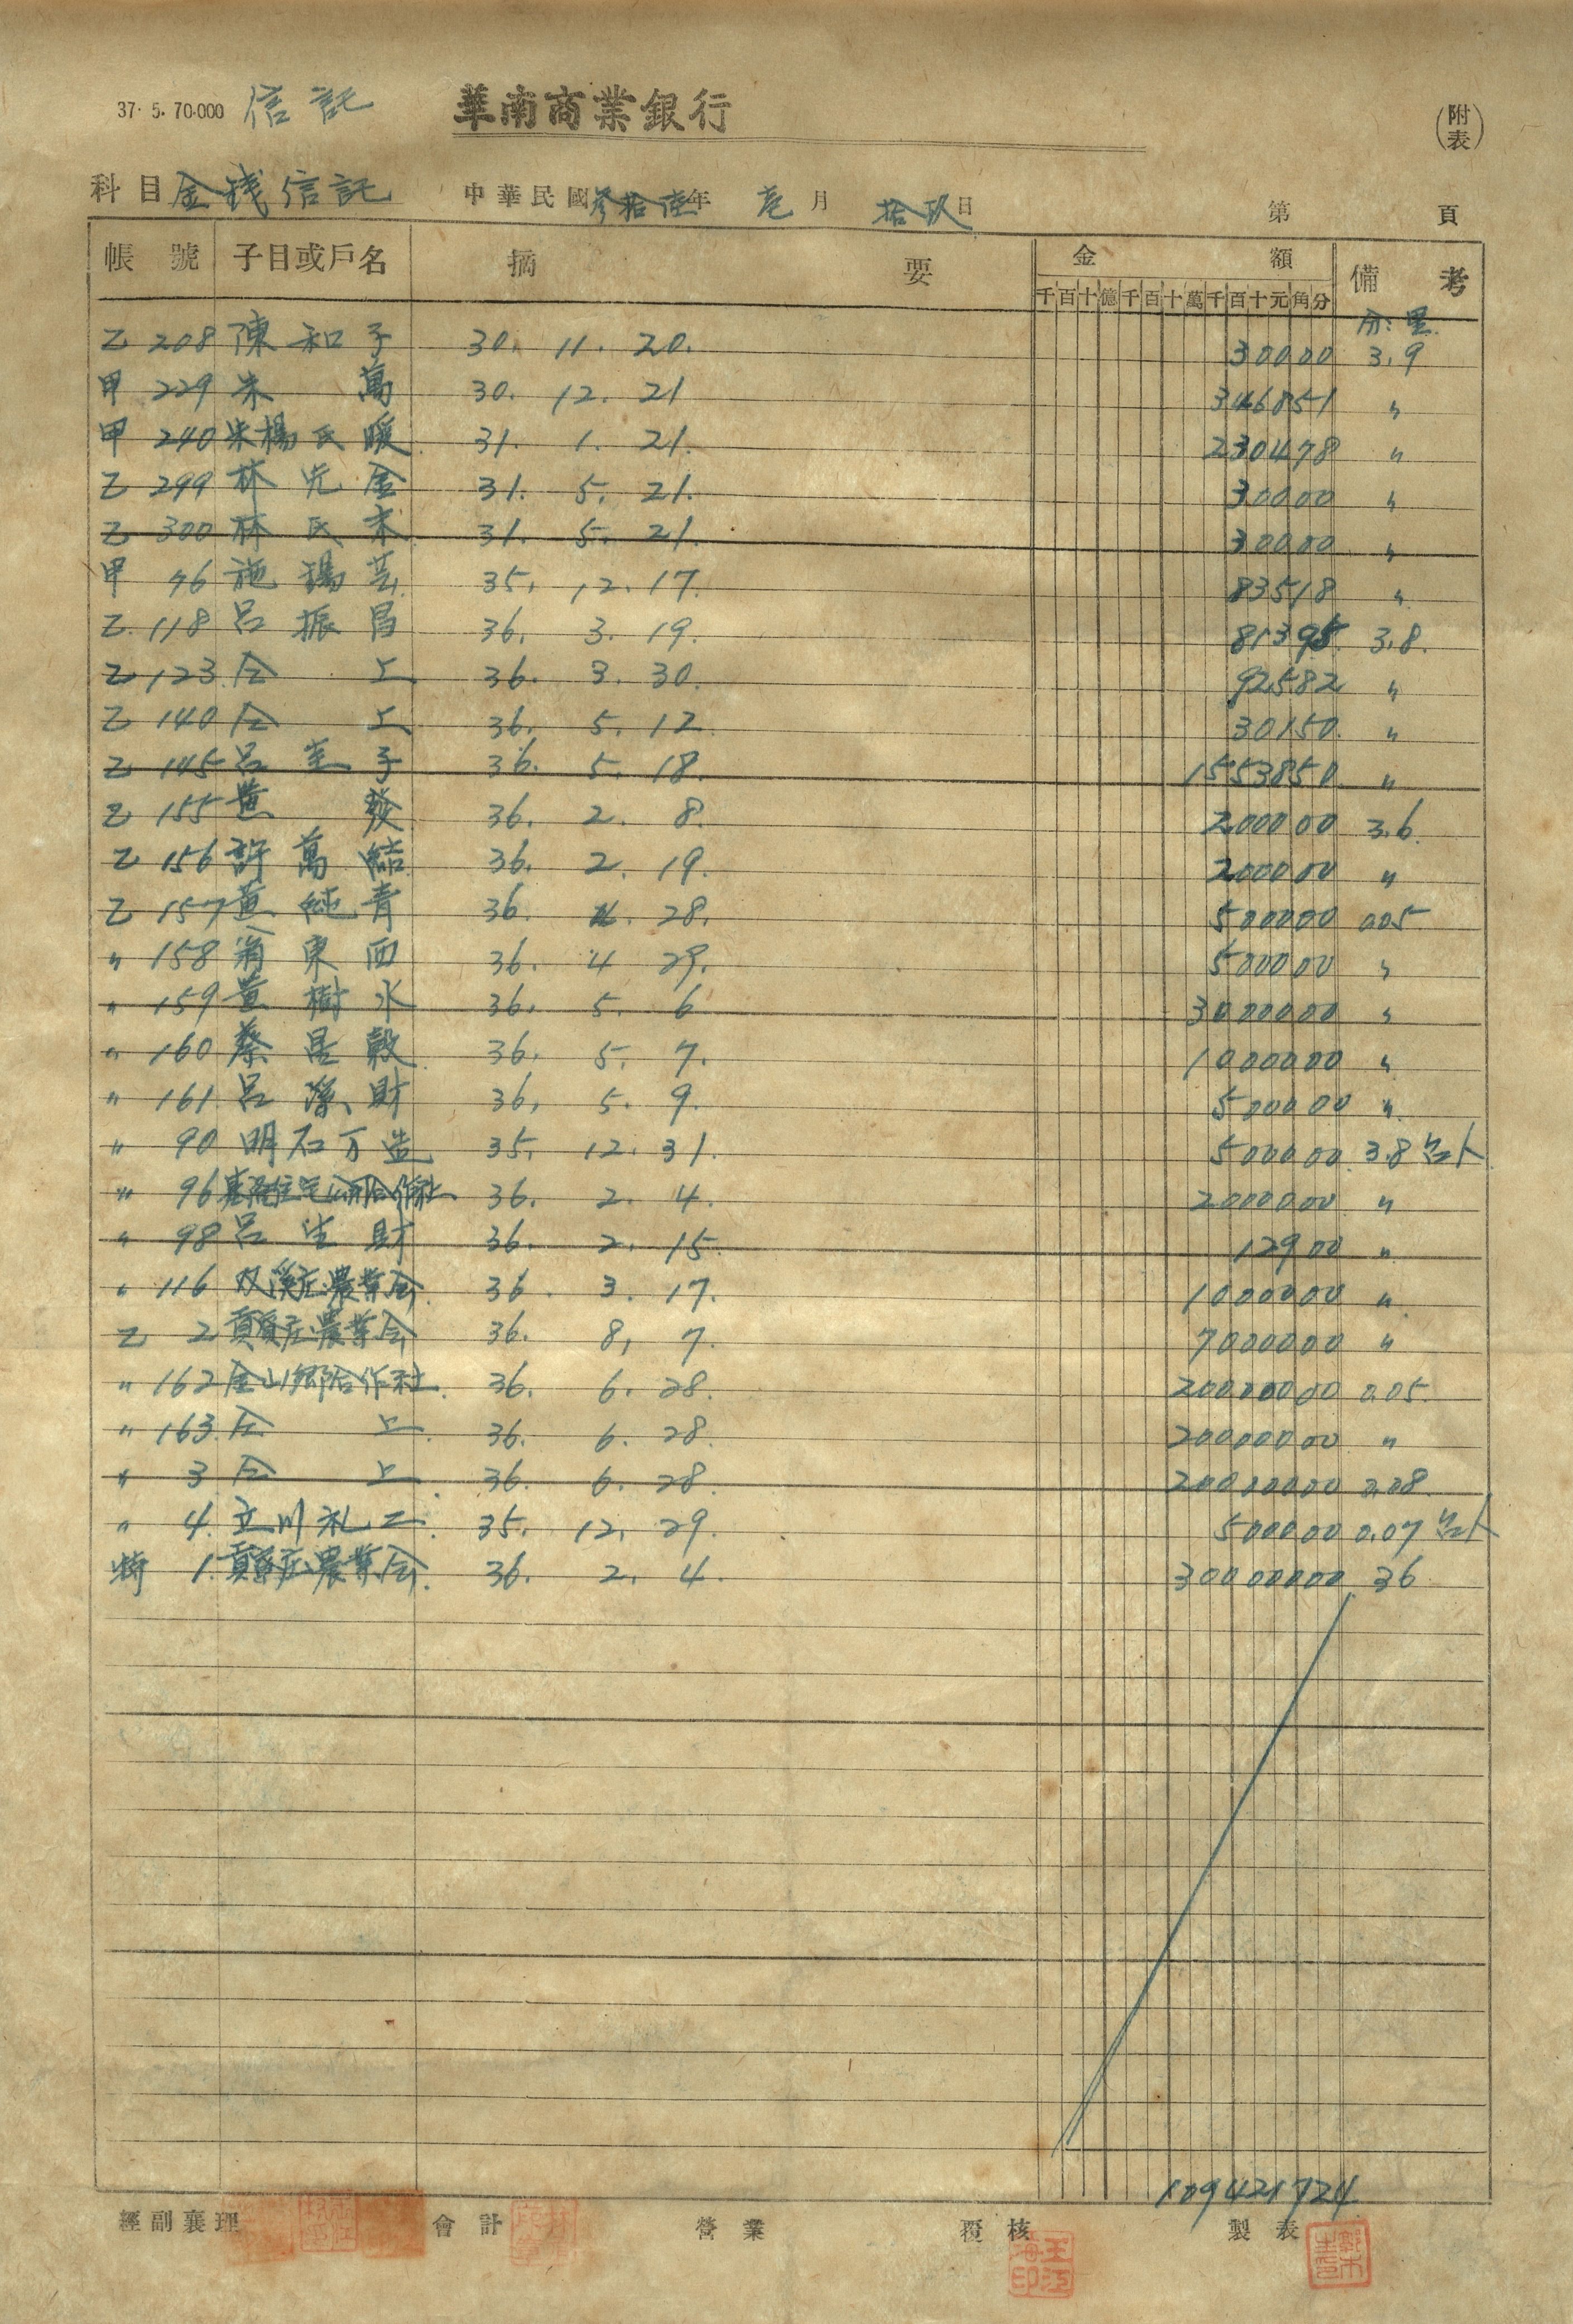 37. 5. 70.000 信託 華南商業銀行 (附表)
科目 金錢信託 中華民國參拾陸年 壱月 拾玖日 第 頁
帳號 子目或戶名 摘要 金額 備考
千百十億千百十萬千百十元角分
分:厘
乙 208 陳和子 30. 11. 20. 30000 3.9
甲 229 朱萬 30. 12. 21 346851 〃
甲 240 朱楊氏暖 31. 1. 21. 230478 〃
乙 299 林先金 31. 5. 21. 30000 〃
乙 300 林氏末 31. 5. 21. 30000 〃
甲 46 施楊芸 35. 12. 17. 83518 〃
乙 118 呂振昌 36. 3. 19. 81395 3.8.
乙 123 仝上 36. 3. 30. 92582 〃
乙 140 仝上 36. 5. 12 30150 〃
乙 145 呂圭子 36. 5. 18. 1553850 〃
乙 155 黃發 36. 2. 8. 200000 3.6
乙 156 許萬結 36. 2. 19. 200000 〃
乙 157 黃純青 36. 4. 28. 500000 005
〃 158 翁東西 36. 4 29. 500000 〃
〃 159 黃樹水 36. 5. 6 3000000 〃
〃 160 蔡星穀 36. 5. 7. 1000000 〃
〃 161 呂溪財 36. 5. 9. 500000 〃
〃 90 明石万造 35. 12. 31. 500000 3.8
〃 96 基隆住宅公用合作社 36. 2. 4. 2000000 〃
〃 98 呂生財 36. 2. 15. 12900 〃
〃 116 双溪庄農業会 36. 3. 17. 1000000 〃
乙 2 貢寮庄農業会 36. 8. 7. 7000000 〃
〃 162 金山鄉合作社 36. 6. 28. 20000000 0.05
〃 163 仝上 36. 6. 28. 20000000 〃
〃 3 仝上 36. 6. 28. 20000000 0.08
〃 4. 立川礼二 35. 12. 29. 500000 0.07
特 1. 貢寮庄農業会 36. 2. 4. 30000000 36
109421724
經副襄理 會計 營業 覆核 製表
王江海印